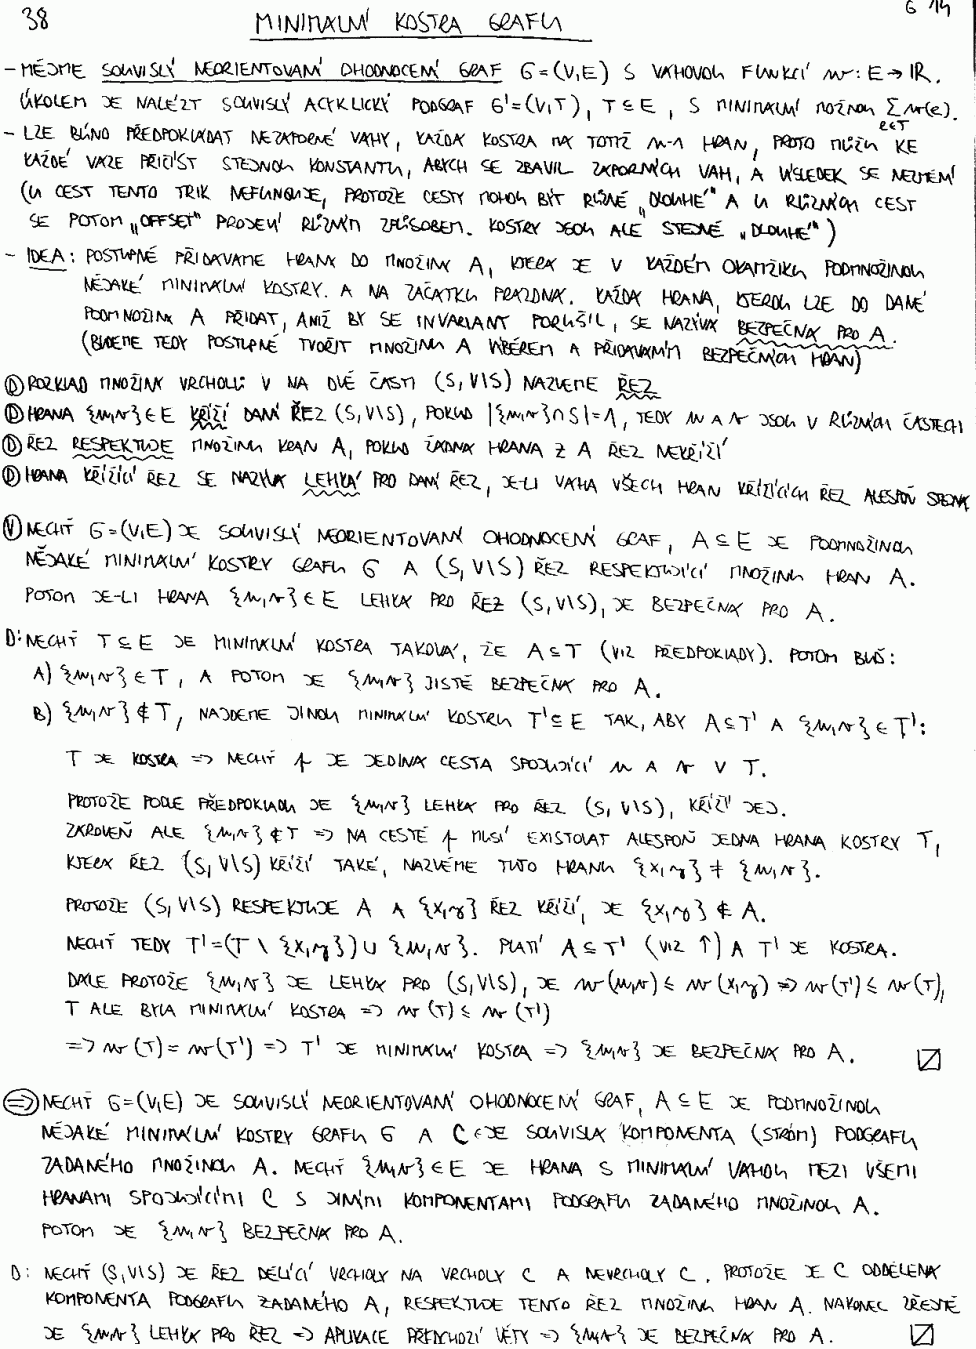 38
MINIMALNÍ KOSTRA GRAFU
G 14
- MĚJME SOUVISLÝ NEORIENTOVANÝ OHODNOCENÝ GRAF G=(V,E) S VAHOVOU FUNKCÍ w: E→ℝ.
ÚKOLEM JE NALÉZT SOUVISLÝ ACYKLICKÝ PODGRAF G'=(V,T), T⊆E, S MINIMALNÍ MOŽNOU ∑w(e).
e∈T
- LZE BÚNO PŘEDPOKLADAT NEZAPORNÉ VAHY, KAŽDA KOSTRA MA TOTIŽ n-1 HRAN, PROTO MŮŽU KE
KAŽDÉ VAZE PŘIČÍST STEJNOU KONSTANTU, ABYCH SE ZBAVIL ZAPORNÝCH VAH, A VÝSLEDEK SE NEZMĚNÍ
(U CEST TENTO TRIK NEFUNGUJE, PROTOŽE CESTY MOHOU BÝT RŮZNĚ „DLOUHÉ" A U RŮZNÝCH CEST
SE POTOM „OFFSET" PROJEVÍ RŮZNÝM ZPŮSOBEM. KOSTRY JSOU ALE STEJNĚ „DLOUHÉ")
- IDEA: POSTUPNĚ PŘIDAVAME HRANY DO MNOŽINY A, KTERA JE V KAŽDÉM OKAMŽIKU PODMNOŽINOU
NĚJAKÉ MINIMALNÍ KOSTRY. A NA ZAČATKU PRAZDNA. KAŽDA HRANA, KTEROU LZE DO DANÉ
PODMNOŽINY A PŘIDAT, ANIŽ BY SE INVARIANT PORUŠIL, SE NAZÝVA BEZPEČNA PRO A.
(BUDEME TEDY POSTUPNĚ TVOŘIT MNOŽINU A VÝBĚREM A PŘIDAVANÍM BEZPEČNÝCH HRAN)
Ⓓ ROZKLAD MNOŽINY VRCHOLŮ V NA DVĚ ČASTI (S, V\S) NAZVEME ŘEZ
Ⓓ HRANA {u,v}∈E KŘÍŽÍ DANÝ ŘEZ (S,V\S), POKUD |{u,v}∩S|=1, TEDY u A v JSOU V RŮZNÝCH ČASTECH
Ⓓ ŘEZ RESPEKTUJE MNOŽINU HRAN A, POKUD ŽADNA HRANA Z A ŘEZ NEKŘÍŽÍ
Ⓓ HRANA KŘÍŽÍCÍ ŘEZ SE NAZÝVA LEHKÁ PRO DANÝ ŘEZ, JE-LI VAHA VŠECH HRAN KŘÍŽÍCÍCH ŘEZ ALESPOŇ STEJNA
Ⓥ NECHŤ G=(V,E) JE SOUVISLÝ NEORIENTOVANÝ OHODNOCENÝ GRAF, A⊆E JE PODMNOŽINOU
NĚJAKÉ MINIMALNÍ KOSTRY GRAFU G A (S, V\S) ŘEZ RESPEKTUJÍCÍ MNOŽINU HRAN A.
POTOM JE-LI HRANA {u,v}∈E LEHKA PRO ŘEZ (S,V\S), JE BEZPEČNA PRO A.
D: NECHŤ T⊆E JE MINIMALNÍ KOSTRA TAKOVÁ, ŽE A⊆T (VIZ PŘEDPOKLADY). POTOM BUĎ:
A) {u,v}∈T, A POTOM JE {u,v} JISTĚ BEZPEČNA PRO A.
B) {u,v}∉T, NAJDEME JINOU MINIMALNÍ KOSTRU T'⊆E TAK, ABY A⊆T' A {u,v}∈T':
T JE KOSTRA => NECHŤ p JE JEDINA CESTA SPOJUJÍCÍ u A v V T.
PROTOŽE PODLE PŘEDPOKLADU JE {u,v} LEHKA PRO ŘEZ (S, V\S), KŘÍŽÍ JEJ.
ZAROVEŇ ALE {u,v}∉T => NA CESTĚ p MUSÍ EXISTOVAT ALESPOŇ JEDNA HRANA KOSTRY T,
KTERA ŘEZ (S,V\S) KŘÍŽÍ TAKÉ, NAZVĚME TUTO HRANU {x,y} ≠ {u,v}.
PROTOŽE (S,V\S) RESPEKTUJE A A {x,y} ŘEZ KŘÍŽÍ, JE {x,y} ∉ A.
NECHŤ TEDY T'=(T \ {x,y}) ∪ {u,v}. PLATÍ A⊆T' (VIZ ↑) A T' JE KOSTRA.
DALE PROTOŽE {u,v} JE LEHKA PRO (S,V\S), JE w(u,v) ≤ w(x,y) => w(T') ≤ w(T),
T ALE BYLA MINIMALNÍ KOSTRA => w(T) ≤ w(T')
=> w(T) = w(T') => T' JE MINIMALNÍ KOSTRA => {u,v} JE BEZPEČNA PRO A.
(=>) NECHŤ G=(V,E) JE SOUVISLÝ NEORIENTOVANÝ OHODNOCENÝ GRAF, A⊆E JE PODMNOŽINOU
NĚJAKÉ MINIMÁLNÍ KOSTRY GRAFU G A C JE SOUVISLA KOMPONENTA (STROM) PODGRAFU
ZADANÉHO MNOŽINOU A. NECHŤ {u,v}∈E JE HRANA S MINIMALNÍ VAHOU MEZI VŠEMI
HRANAMI SPOJUJÍCÍMI C S JINÝMI KOMPONENTAMI PODGRAFU ZADANÉHO MNOŽINOU A.
POTOM JE {u,v} BEZPEČNA PRO A.
D: NECHŤ (S,V\S) JE ŘEZ DĚLÍCÍ VRCHOLY NA VRCHOLY C A NEVRCHOLY C. PROTOŽE JE C ODDĚLENA
KOMPONENTA PODGRAFU ZADANÉHO A, RESPEKTUJE TENTO ŘEZ MNOŽINU HRAN A. NAKONEC ZŘEJMĚ
JE {u,v} LEHKA PRO ŘEZ => APLIKACE PŘEDCHOZÍ VĚTY => {u,v} JE BEZPEČNA PRO A.